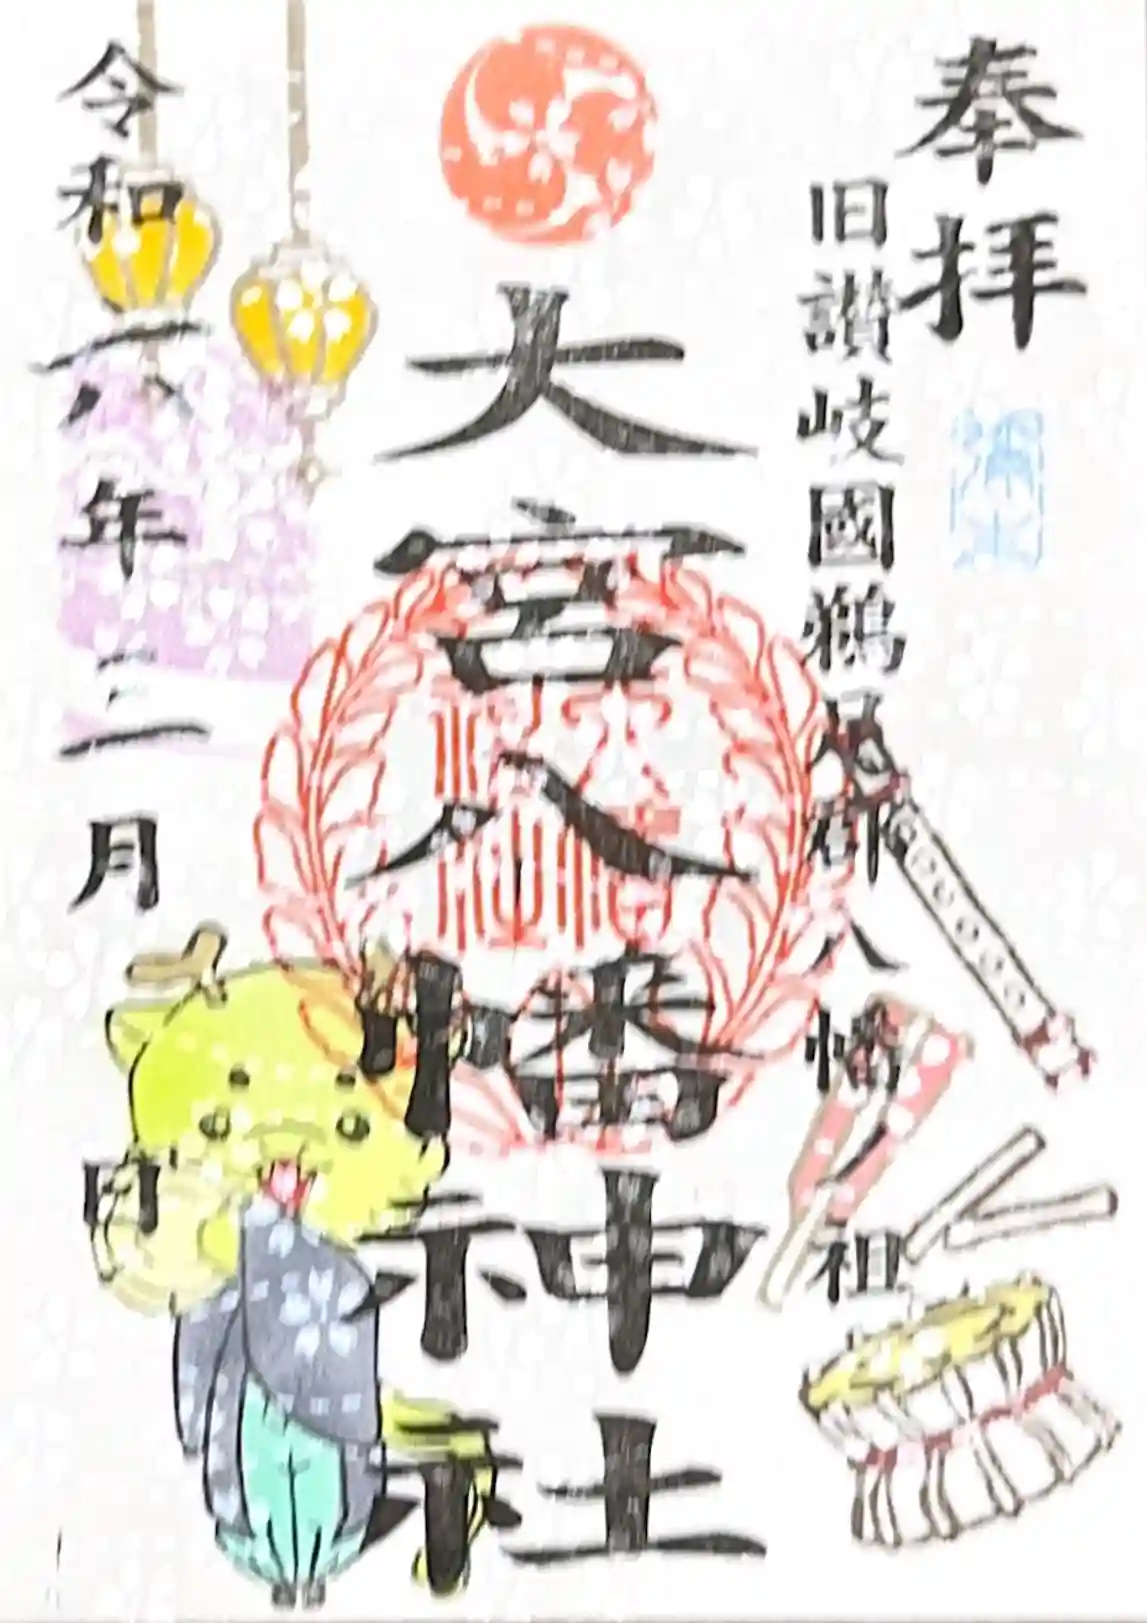 奉拝
旧讃岐國鵜足郡八幡ノ祖
大宮八幡神社
令和六年三月 日